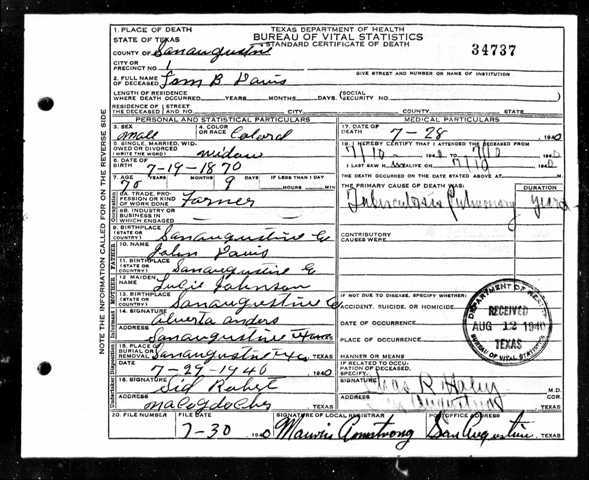 TEXAS DEPARTMENT OF HEALTH
BUREAU OF VITAL STATISTICS
STANDARD CERTIFICATE OF DEATH
34737
1. PLACE OF DEATH
STATE OF TEXAS
COUNTY OF Sanaugustine
CITY OR
PRECINCT NO. 1
GIVE STREET AND NUMBER OR NAME OF INSTITUTION
2. FULL NAME
OF DECEASED Tom B Davis
LENGTH OF RESIDENCE
WHERE DEATH OCCURRED YEARS MONTHS DAYS (SOCIAL
SECURITY NO.
RESIDENCE OF THE DECEASED STREET AND NO. CITY COUNTY STATE
PERSONAL AND STATISTICAL PARTICULARS
3. SEX male
4. COLOR
OR RACE Colord
5. SINGLE, MARRIED, WIDOWED OR DIVORCED
(WRITE THE WORD) widow
6. DATE OF
BIRTH 7-19-1870
7. AGE YEARS MONTHS DAYS IF LESS THAN 1 DAY
70 9 HOURS MIN
8A. TRADE, PROFESSION OR KIND
OF WORK DONE Farmer
8B. INDUSTRY OR
BUSINESS IN
WHICH ENGAGED
9. BIRTHPLACE
(STATE OR
COUNTRY) Sanaugustine
10. NAME John Davis
11. BIRTHPLACE
(STATE OR
COUNTRY) Sanaugustine
12. MAIDEN
NAME Johnson
13. BIRTHPLACE
(STATE OR
COUNTRY) Sanaugustine Co
14. SIGNATURE Alverta
ADDRESS Sanaugustine Texas
15. PLACE OF
BURIAL OR
REMOVAL Sanaugustine TEXAS
DATE 7-29-1940 1940
16. SIGNATURE Sid
ADDRESS Nacogdoches TEXAS
MEDICAL PARTICULARS
17. DATE OF
DEATH 7-28 1940
18. I HEREBY CERTIFY THAT I ATTENDED THE DECEASED FROM
1940 TO 1940
I LAST SAW H ALIVE ON 1940
THE DEATH OCCURRED ON THE DATE STATED ABOVE AT M
THE PRIMARY CAUSE OF DEATH WAS: DURATION
Tuberculosis Pulmonary years
CONTRIBUTORY
CAUSES WERE
IF NOT DUE TO DISEASE, SPECIFY:
ACCIDENT, SUICIDE, OR HOMICIDE
DATE OF OCCURRENCE
PLACE OF OCCURRENCE
MANNER OR MEANS
IF RELATED TO OCCUPATION OF DECEASED,
SPECIFY
SIGNATURE R Haley M.D.
ADDRESS TEXAS
20. FILE NUMBER FILE DATE SIGNATURE OF LOCAL REGISTRAR POSTOFFICE ADDRESS
7-30 1940 Armstrong San Augustine TEXAS
DEPARTMENT OF HEALTH
RECEIVED
AUG 12 1940
TEXAS
BUREAU OF VITAL STATISTICS
NOTE INFORMATION CALLED FOR ON THE REVERSE SIDE
FATHER
MOTHER